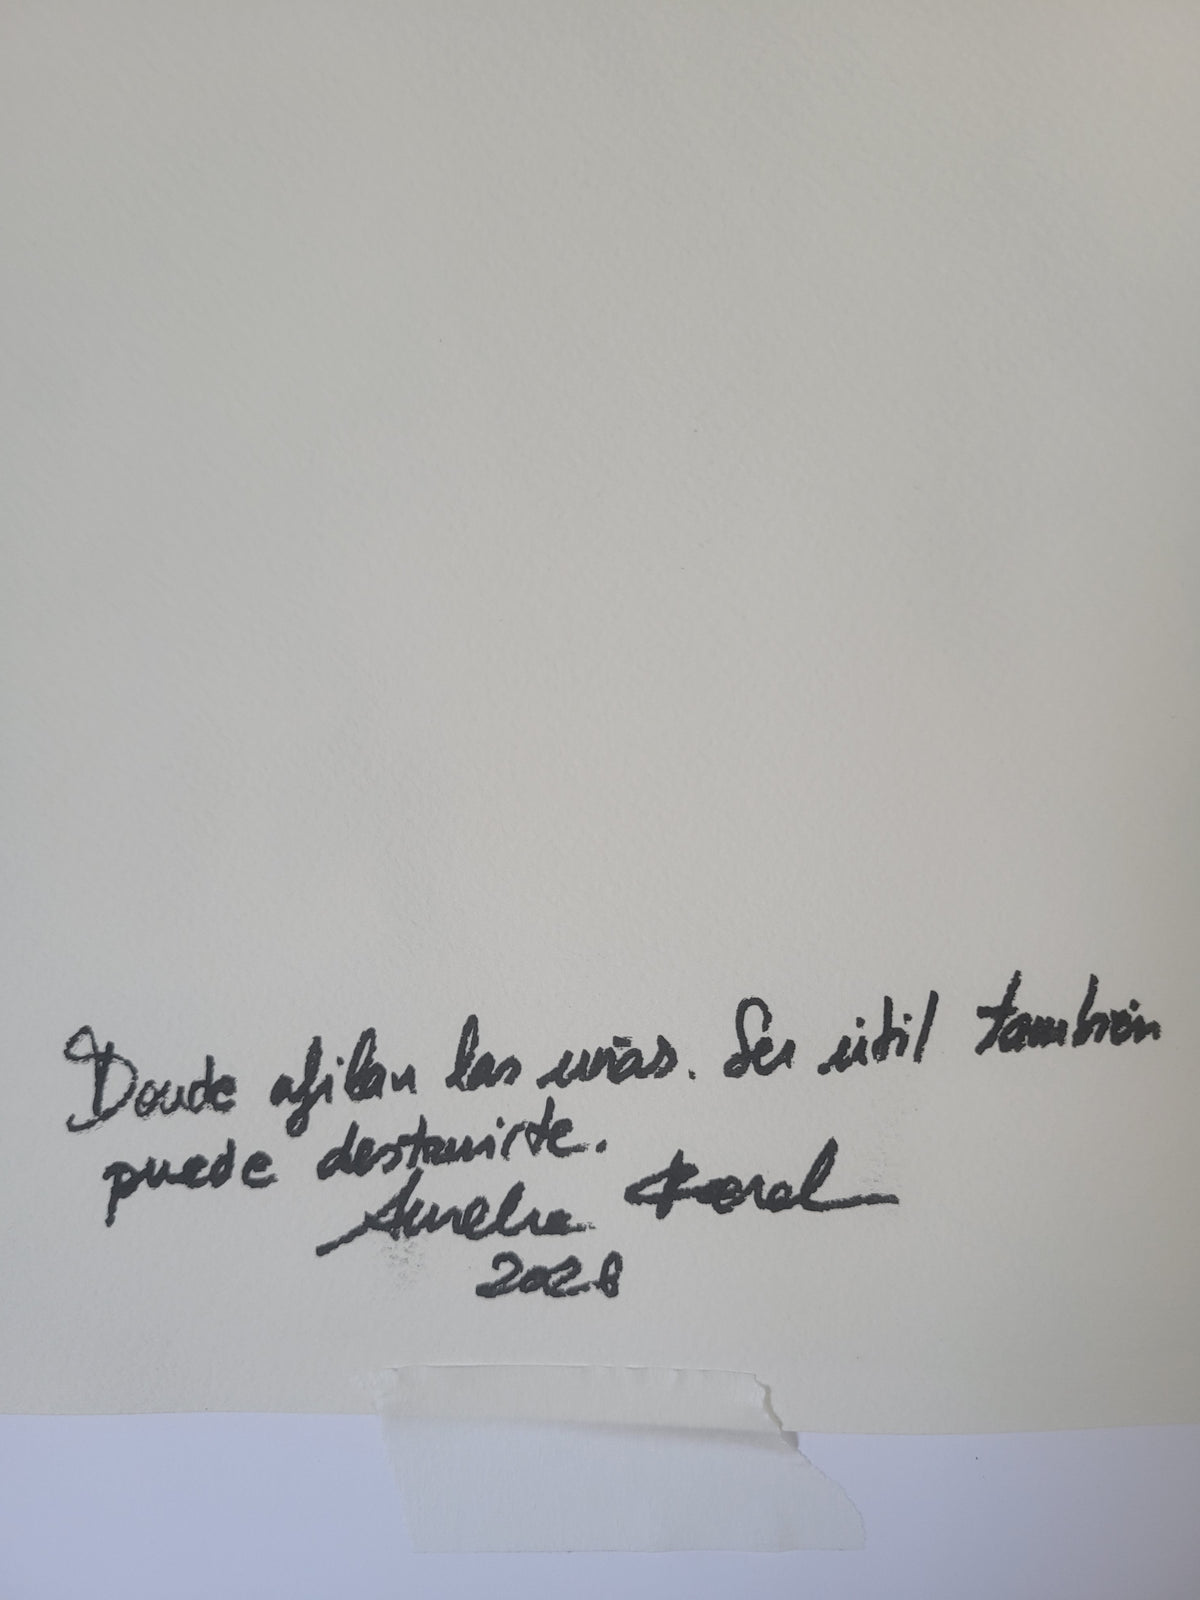 Donde afilan las uñas. Ser útil también
puede destruirte.
Aurelia Koral
2028